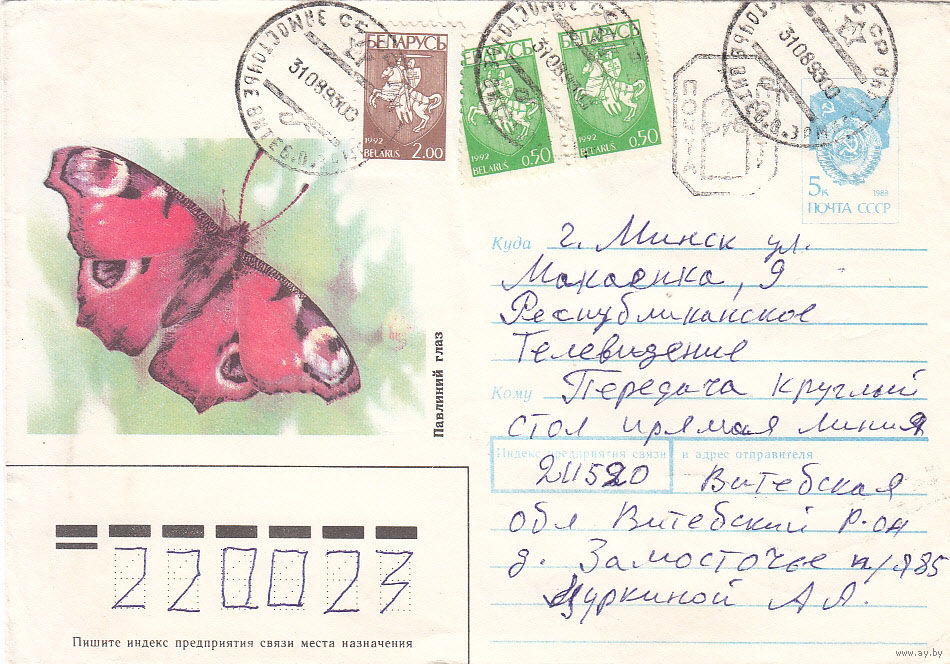 БЕЛАРУСЬ
1992
BELARUS
2.00
1992
BELARUS
0.50
БЕЛАРУСЬ
1992
BELARUS
0.50
ЗАМОСТОЧЬЕ
310893
310893
310893
5к
1988
ПОЧТА СССР
Павлиний глаз
Куда г. Минск ул.
Макаенка, 9
Республиканское
Телевидение
Кому Передача круглый
стол прямая линия
Индекс предприятия связи и адрес отправителя
211520 Витебская
обл Витебский р-он
д. Замосточье п/я 85
Цуркиной А Я.
220023
Пишите индекс предприятия связи места назначения
www.ay.by